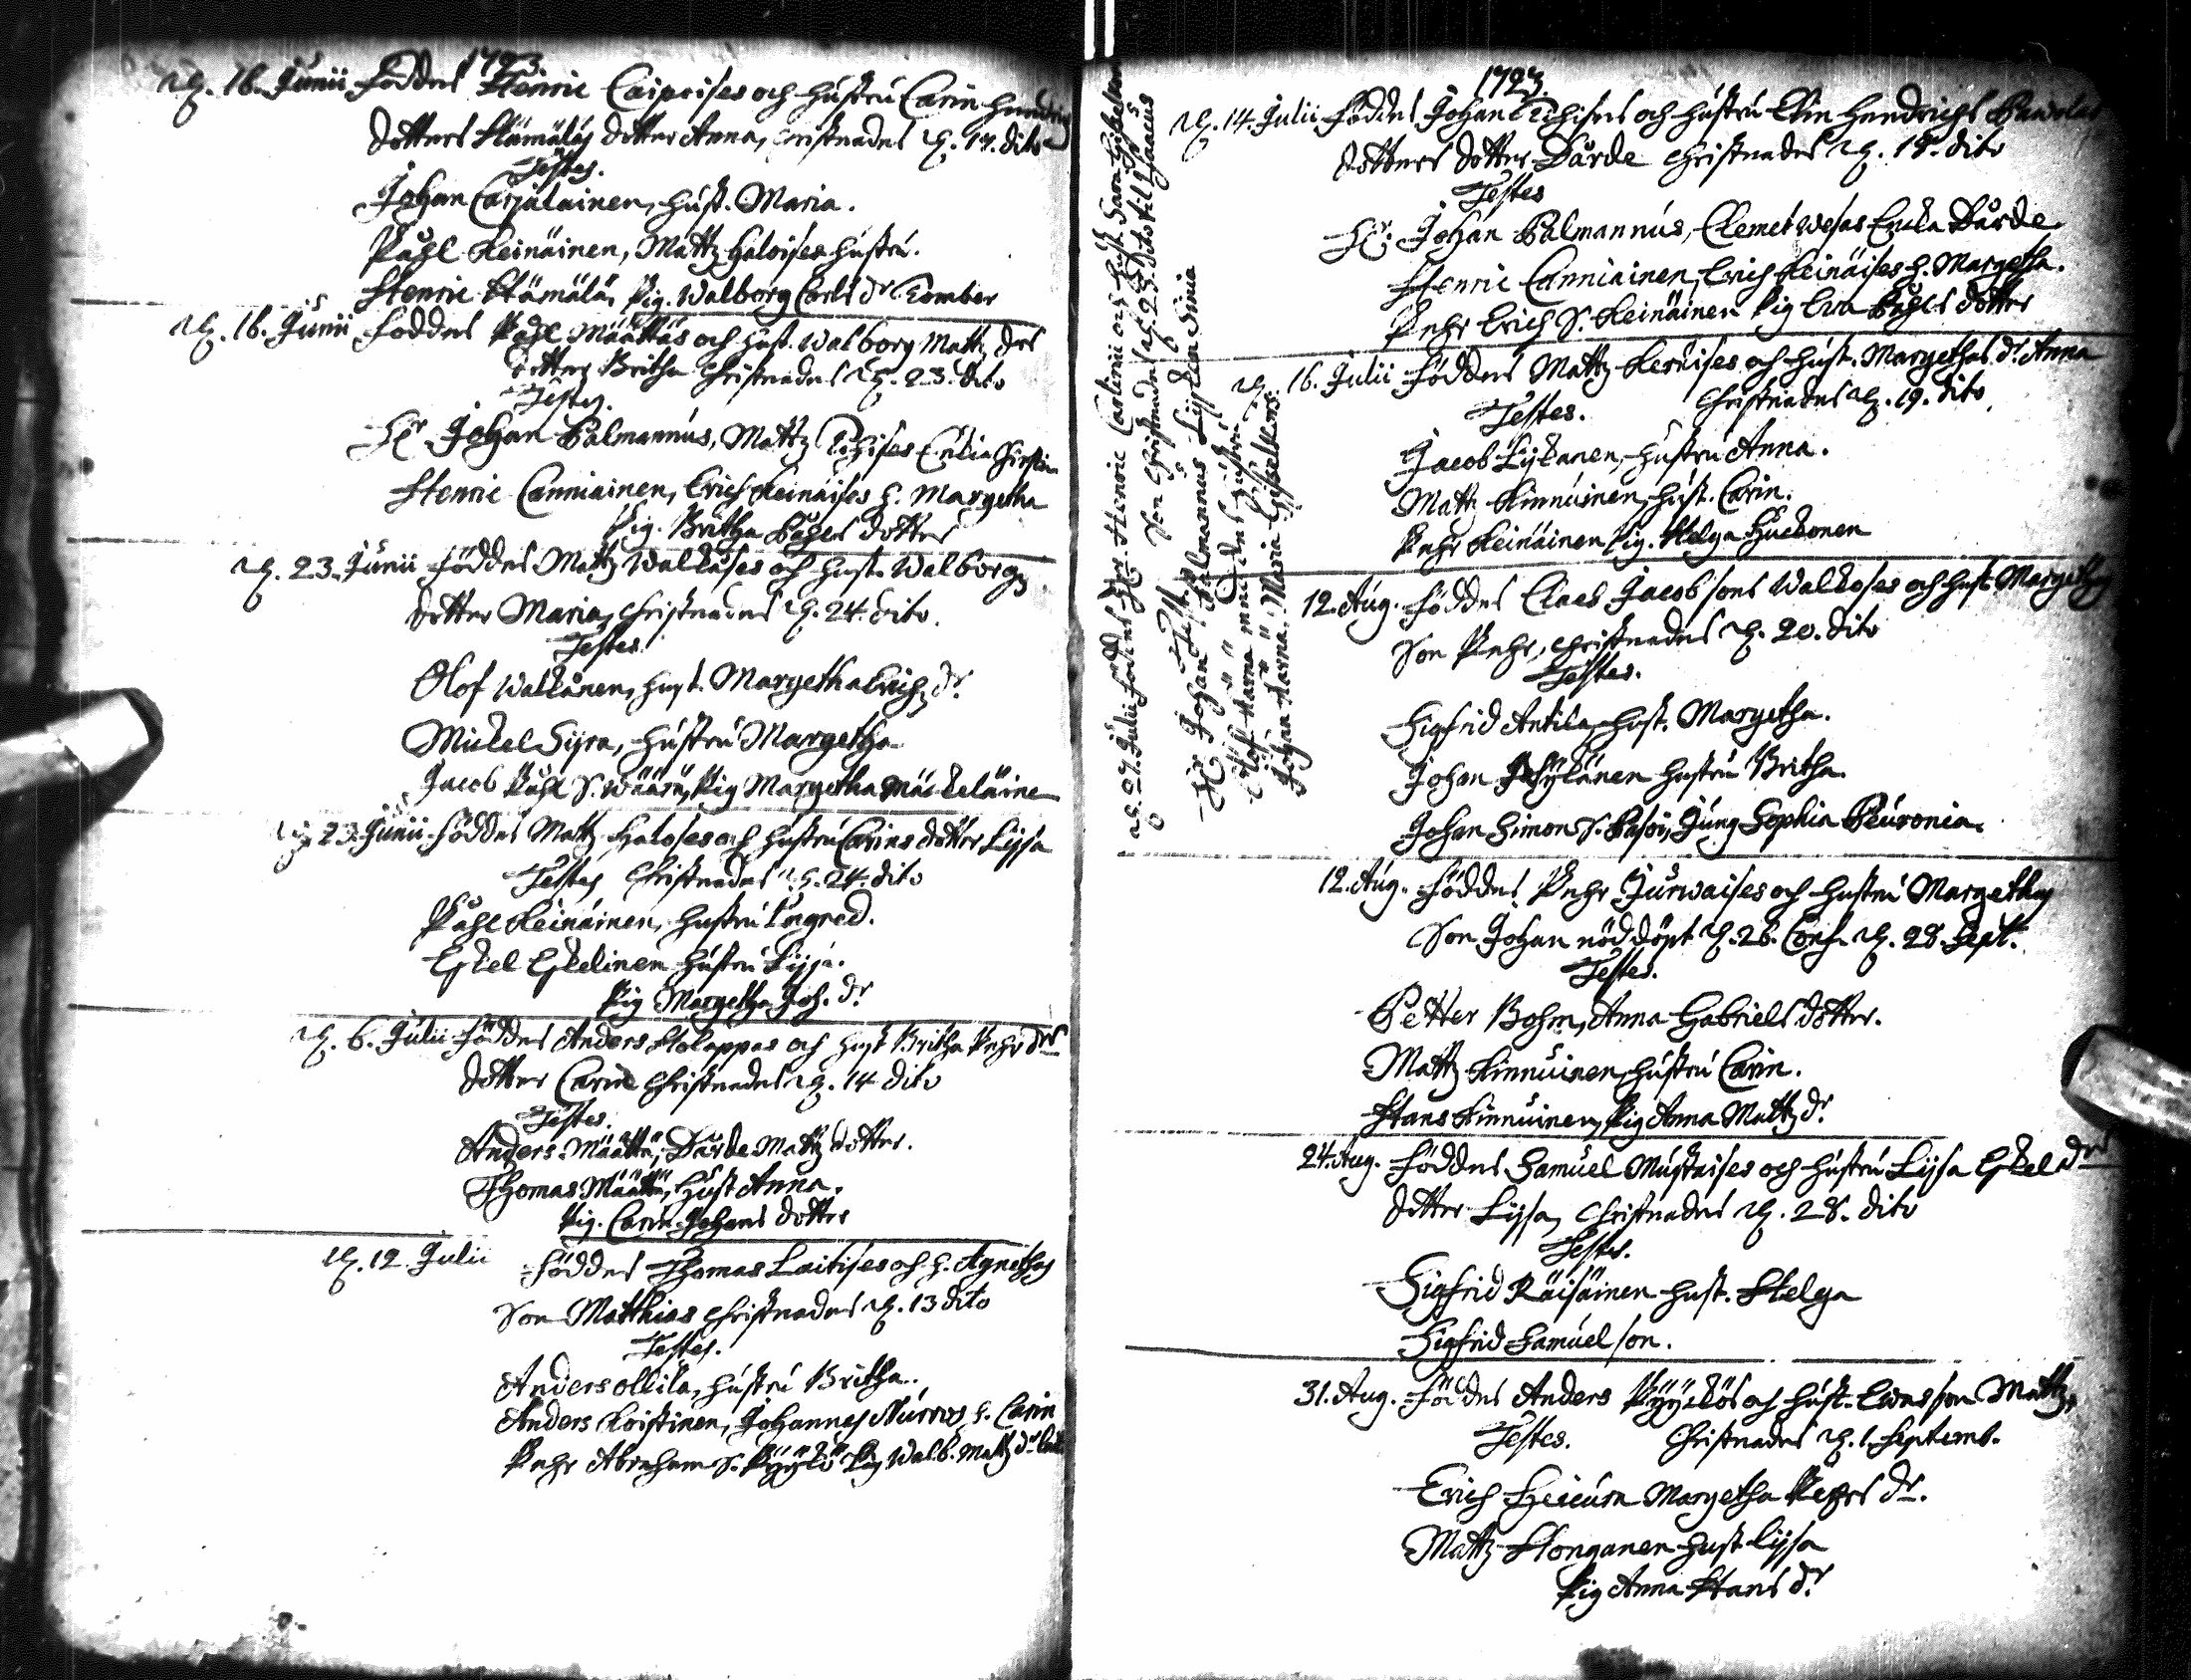 1723.
d. 16. Junii föddes Henric Caiprises och hustru Carin Hendrics
dotters Hämäläs dotter Anna, christnades d. 17. dito
Testes.
Johan Carjalainen, hust. Maria.
Påhl Keinäinen, Mattz Haloises hustru.
Henric Hämälä, Pig. Walborg Carls dr
d. 16. Junii föddes Påhl Määttäs och hust. Walborg Mattz drs
dotter Britha christnades d. 23. dito
Testes.
Hr Johan Calmannus, Mattz
Henric Canniainen, Erich Keinäises h. Margetha
Pig. Britha Påhls dotter
d. 23. Junii föddes Mattz Walkåses och hust. Walborgs
dotter Maria, christnades d. 24. dito.
Testes.
Olof Walkånen, hust. Margetha Erichz dr.
Mickel Syra, hustru Margetha
Jacob Påhl S. Määttä, Pig Margetha Mäckeläinen
d. 23. Junii föddes Mattz Haloses och hustru Carins dotter Lijsa
Testes christnades d. 24. dito
Påhl Keinäinen, hustru Ingred.
Eskel Eskelinen hustru Lijsa.
Pig Margetha Joh. dr
d. 6. Julii föddes Anders Holappas och hust Britha Pehr drs
dotter Carin christnades d. 14 dito
Testes.
Anders Määttä, Dårde Mattz dotter.
Thomas Määttä, hust Anna.
Pig. Carin Johans dotter
d. 12 Julii föddes Thomas Laitises och h. Agnethas
Son Matthias christnades d. 13 dito
Testes.
Anders Ollila, hustru Britha.
Anders Koistinen, Johannes Nurros h. Carin
Pehr Abraham S. Pyykö Pig Walb. Mattz dr
1723.
d. 14. Julii föddes Johan och hustru Elin Hendrichs
dotters dotter Dårde christnades d. 18. dito
Testes
Hr. Johan Calmannus, Clemet Wesas Enka Dårde
Henric Canniainen, Erich Keinäises h. Margetha.
Pehr Erich S. Keinäinen Pig Eva Påhls dotter
d. 16. Julii föddes Mattz Kerkises och hust. Margethas dr. Anna
Testes. Christnades d. 19. dito
Jacob Lykanen, hustru Anna.
Mattz Kinnuinen, hust. Carin.
Pehr Keinäinen Pig. Helga Huckonen
d. 27. Julii föddes Hr. Henric Castenii och hust. Sara
Son christnades d. 28. dito
Testes
Hr Johan Calmannus
Olof Harna med des hustru
Johan Harna, Maria Gisselkors
12. Aug. föddes Claes Jacobsons Walkoses och hust Margethas
Son Pehr, christnades d. 20. dito
Testes.
Sigfrid Antila, hust. Margetha.
Johan hustru Britha.
Johan Simon S. Jung Sophia Peuronia.
12. Aug. föddes Pehr Jurwaises och hustru Margethas
Son Johan nöddöpt d. 26. Conf. d. 28. Sept.
Testes.
Petter Bohm, Anna Gabriels dotter.
Mattz Kinnuinen, hustru Carin.
Hans Kinnuinen, Pig Anna Mattz dr
24. Aug. föddes Samuel Mustaises och hustru Lijsa Eskel drs
dotter Lijsa, christnades d. 28. dito
Testes.
Sigfrid Räisäinen hust. Helga
Sigfrid Samuelson.
31. Aug. föddes Anders Pyykös och hust. Evas son Mattz,
Testes. Christnades d. 1. Septemb.
Erich Heicura Margetha Pehrs dr.
Mattz Honganen hust Lijsa
Pig Anna Hans dr